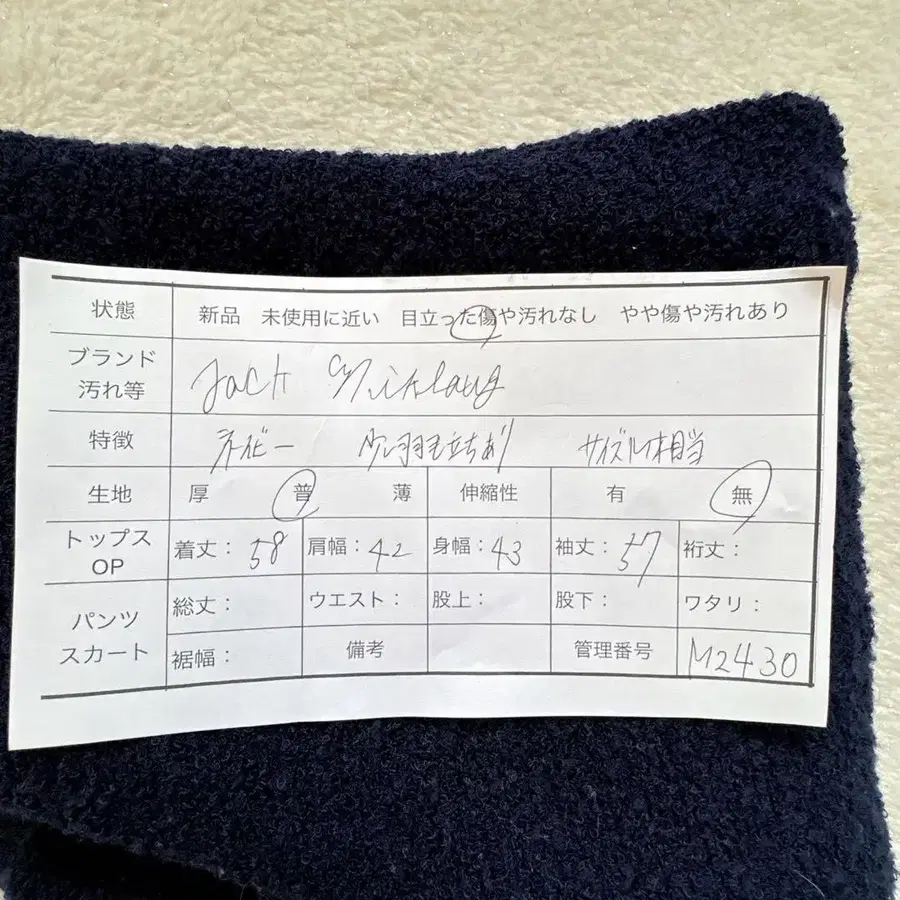 状態 新品 未使用に近い 目立った傷や汚れなし やや傷や汚れあり
ブランド
汚れ等 Jack Nicklaus
特徴 ネービー 少し羽毛立ちあり サイズM相当
生地 厚 普 薄 伸縮性 有 無
トップス
OP 着丈：58 肩幅：42 身幅：43 袖丈：57 裄丈：
パンツ
スカート 総丈： ウエスト： 股上： 股下： ワタリ：
裾幅： 備考 管理番号 M2430